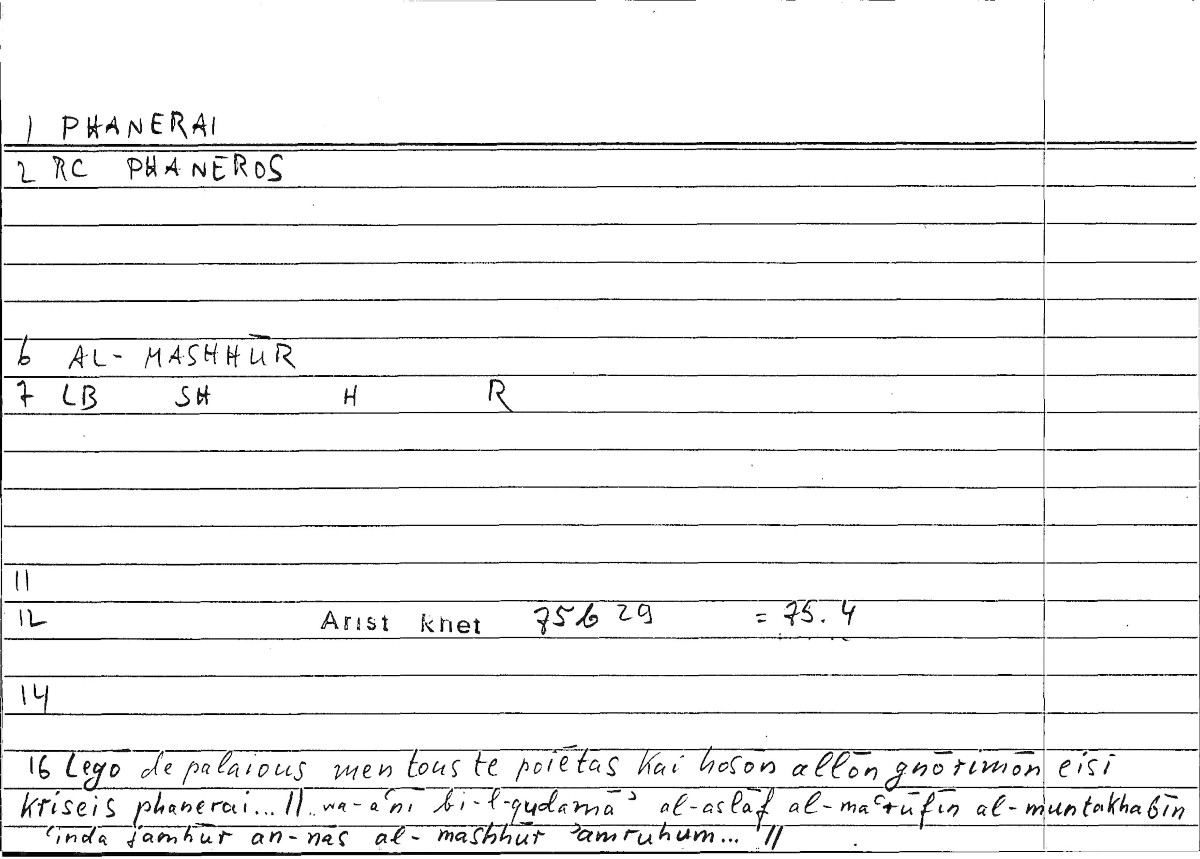 1 PHANERAI
2 RC PHANEROS
6 AL-MASHHŪR
7 LB SH H R
11
12 Arist Rhet 75b29 = 75.4
14
16 Legō de palaious men tous te poiētas kai hosōn allōn gnōrimōn eisi
kriseis phanerai... // wa-aʿnī bi-l-qudamāʾ al-aslāf al-maʿrūfīn al-muntakhabīn
ʿinda jamhūr an-nās al-mashhūr ʾamruhum... //